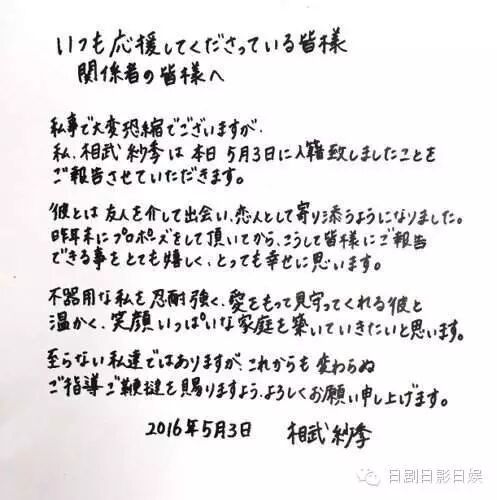 いつも応援してくださっている皆様
関係者の皆様へ
私事で大変恐縮でございますが、
私、相武紗季は本日5月3日に入籍致しましたことを
ご報告させていただきます。
彼とは友人を介して出会い、恋人として寄り添うようになりました。
昨年末にプロポーズをして頂いてから、こうして皆様にご報告
できる事をとても嬉しく、とっても幸せに思います。
不器用な私を忍耐強く、愛をもって見守ってくれる彼と
温かく、笑顔いっぱいな家庭を築いていきたいと思います。
至らない私達ではありますが、これからも変わらぬ
ご指導ご鞭撻を賜りますよう、よろしくお願い申し上げます。
2016年5月3日 相武紗季
日剧日影日娱